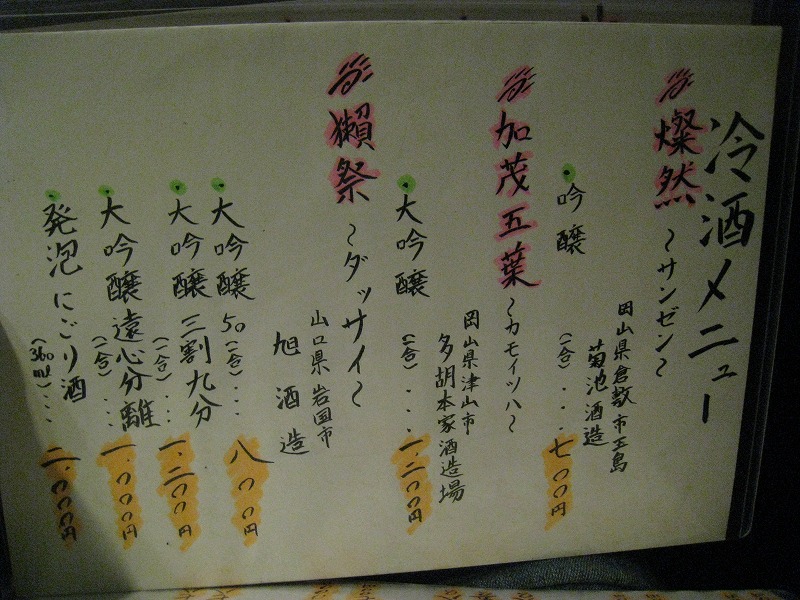 冷酒メニュー
燦然 〜サンゼン〜
岡山県倉敷市玉島
菊池酒造
・吟醸 (一合)・・・七〇〇円
加茂五葉 〜カモイツハ〜
岡山県津山市
多胡本家酒造場
・大吟醸 (一合)・・・一、二〇〇円
獺祭 〜ダッサイ〜
山口県岩国市
旭酒造
・大吟醸 50 (一合)・・・八〇〇円
・大吟醸 三割九分 (一合)・・・一、二〇〇円
・大吟醸 遠心分離 (一合)・・・
・発泡にごり酒 (360ml)・・・二、〇〇〇円